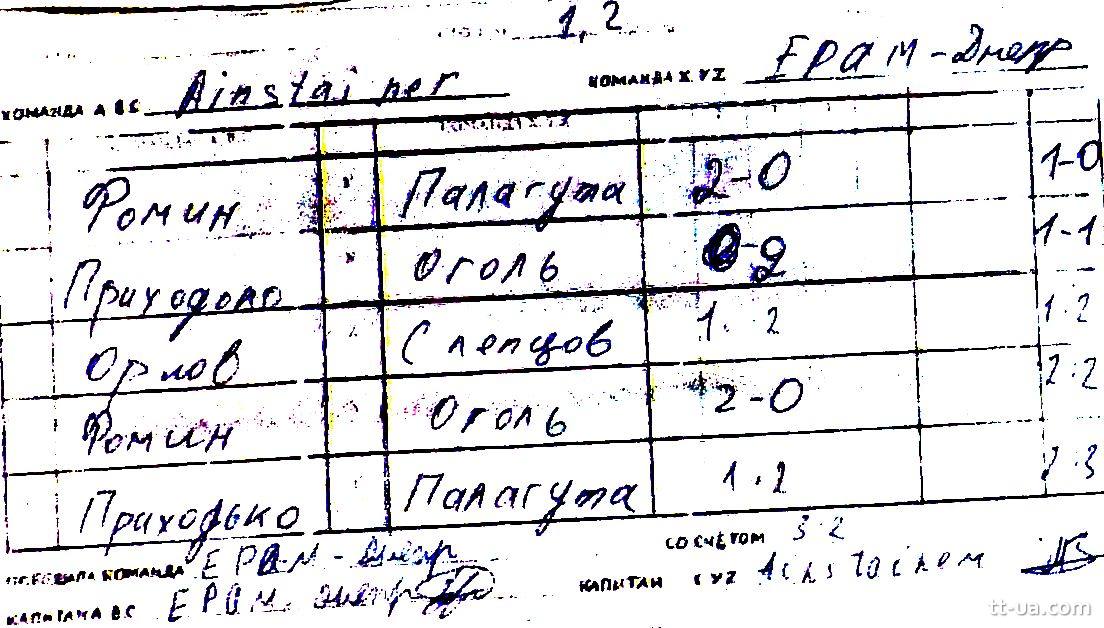 1, 2
КОМАНДА А В С Ainstainer КОМАНДА X Y Z EPAM - Днепр
КОМАНДА X Y Z
Фомин Палагута 2-0 1-0
Приходько Оголь 0-2 1-1
Орлов Слепцов 1·2 1·2
Фомин Оголь 2-0 2·2
Приходько Палагута 1·2 2·3
ПОБЕДИЛА КОМАНДА EPAM - Днепр СО СЧЁТОМ 3·2
КАПИТАН А В С EPAM Днепр КАПИТАН X YZ
tt-ua.com